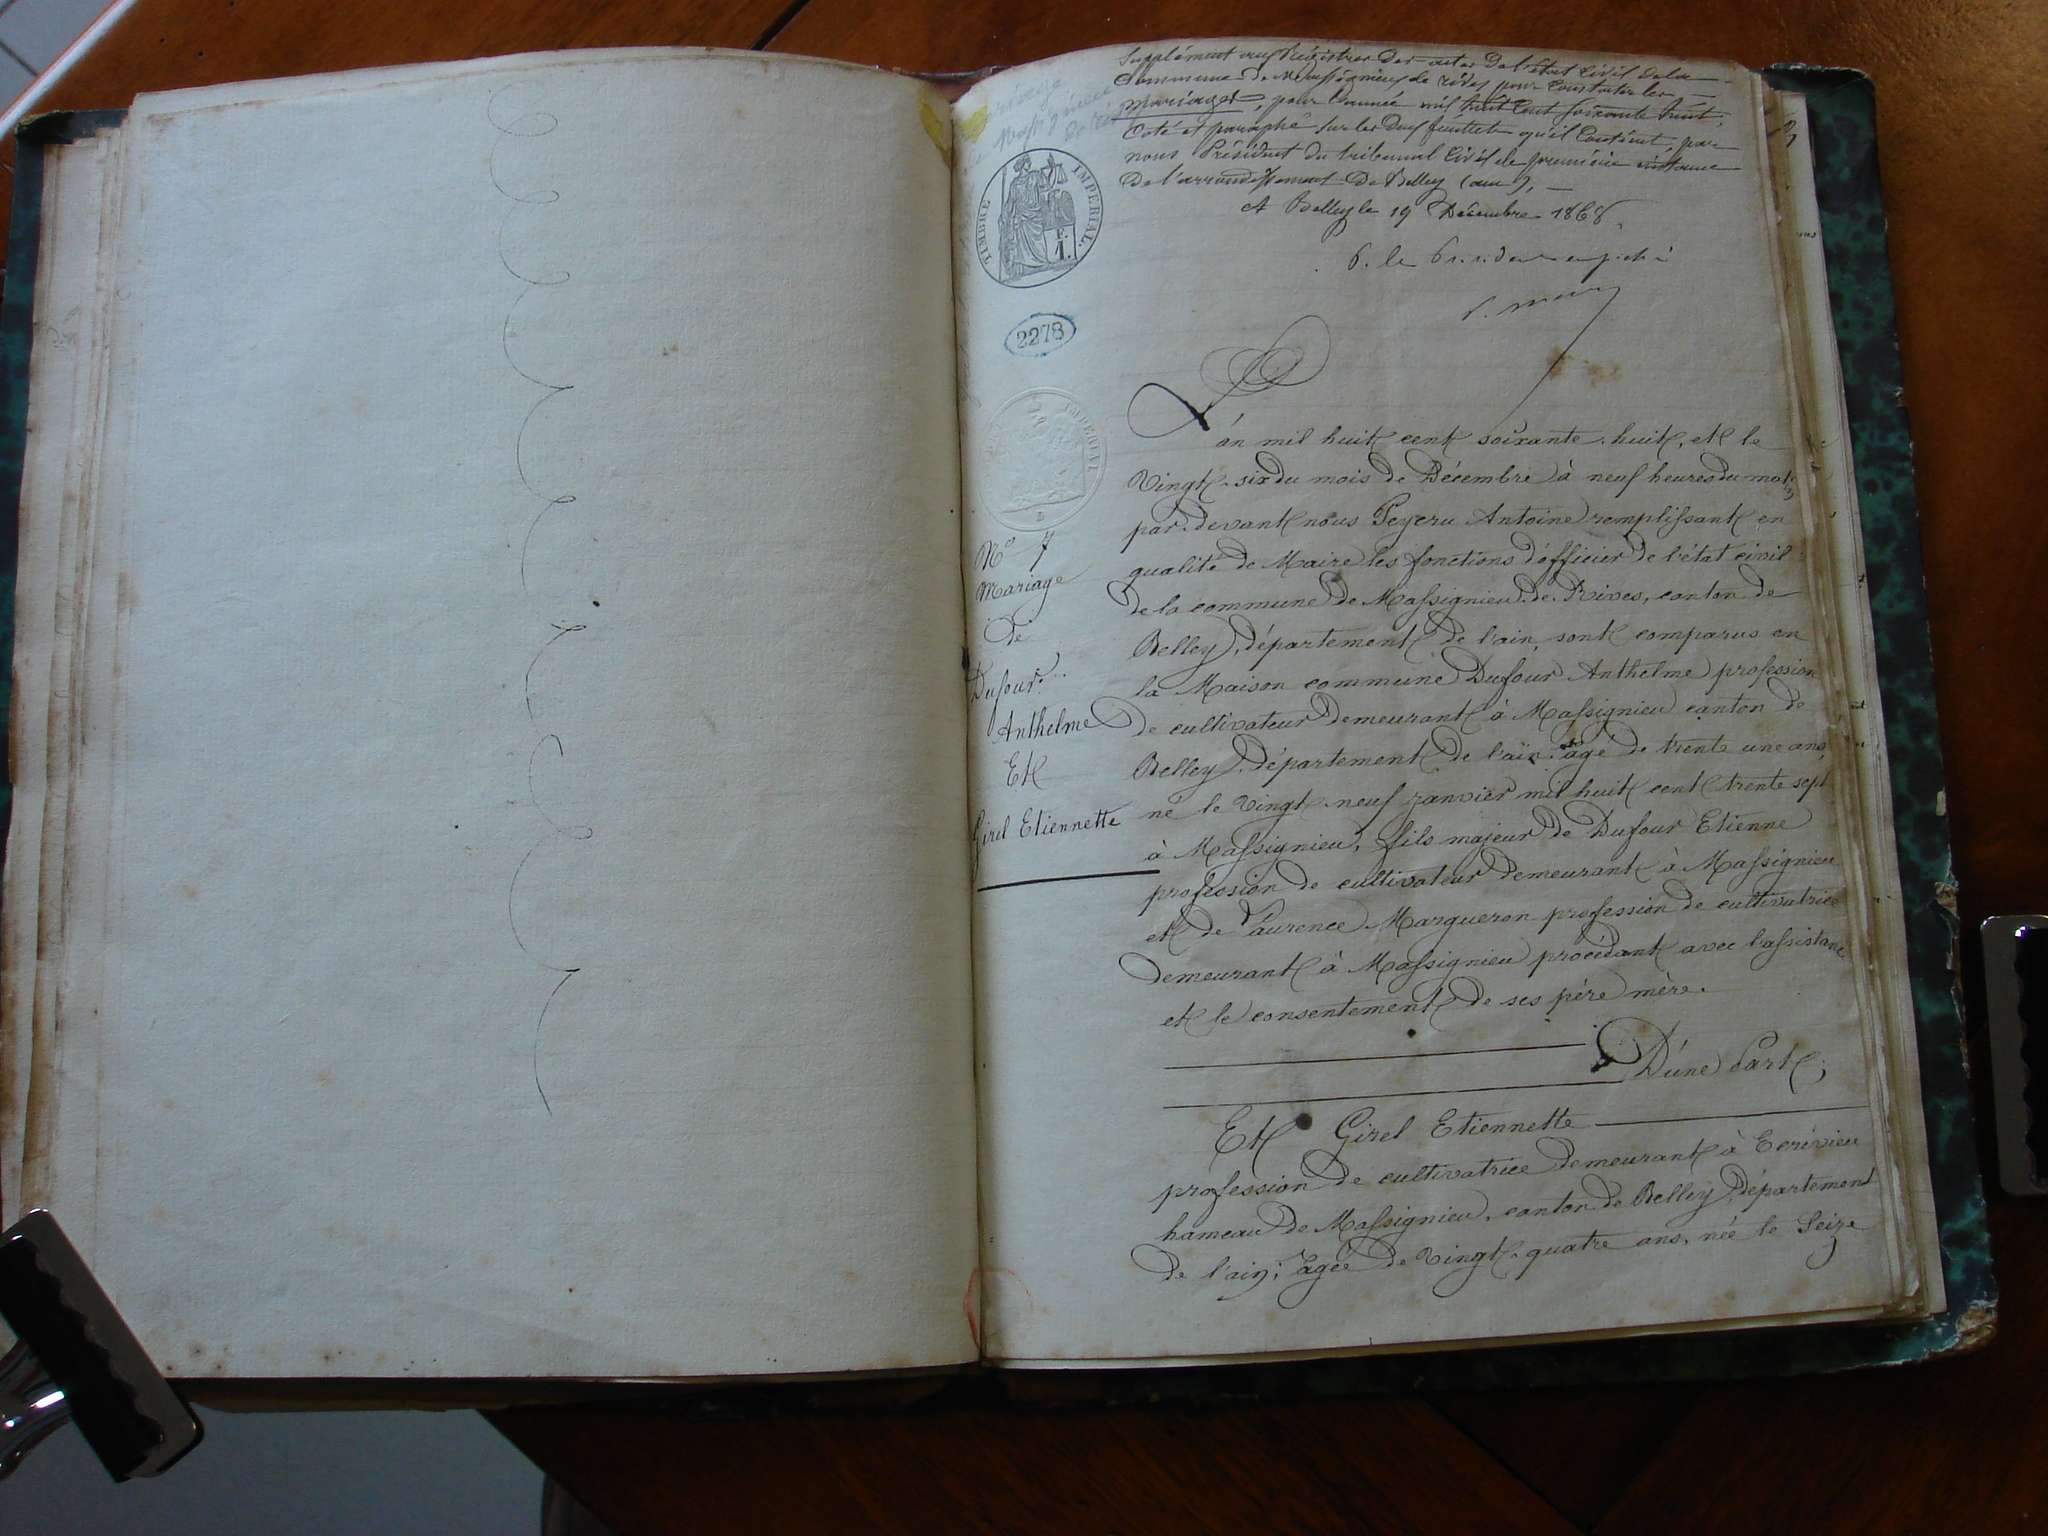 Supplément aux Régistres des actes de l'état civil de la
Commune de Massignieu de rives pour Constater les
Mariages, pour l'année mil huit Cent soixante huit,
Coté et paraphé sur les deux feuillets qu'il Contient, par
nous Président du tribunal Civil de première instance
De l'arrondissement de Belley (ain),
A Belley le 19 Décembre 1868
P. le Président empêché
mariage
Massignieu
de Rives
TIMBRE IMPÉRIAL.
1.F.
2278
IMPERIAL
No 7
Mariage
de
Dufour
Anthelme
Et
Girel Etiennette
L'an mil huit cent soixante-huit, et le
Vingt-six du mois de Décembre à neuf heures du mat
par-devant nous Peyeru Antoine remplissant en
qualité de Maire les fonctions d'officier de l'état civil
de la commune de Massignieu-de-Rives, canton de
Belley, département de l'ain, sont comparus en
la Maison commune Dufour Anthelme profession
de cultivateur demeurant à Massignieu canton de
Belley, département de l'ain âgé de trente une ans,
né le Vingt-neuf Janvier mil huit cent trente sept
à Massignieu, fils majeur de Dufour Etienne
profession de cultivateur demeurant à Massignieu
et de Laurence Margueron profession de cultivatrice
demeurant à Massignieu procédant avec l'assistance
et le consentement de ses père mère.
D'une Part;
Et Girel Etiennette
profession de cultivatrice demeurant à Ecrivieu
hameau de Massignieu, canton de Belley, département
de l'ain; agée de Vingt-quatre ans, née le Seize